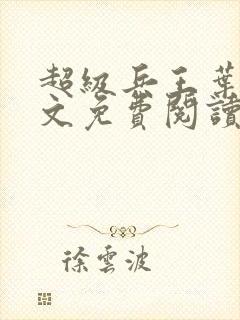 超級兵王葉
文免費閱讀
徐雲波